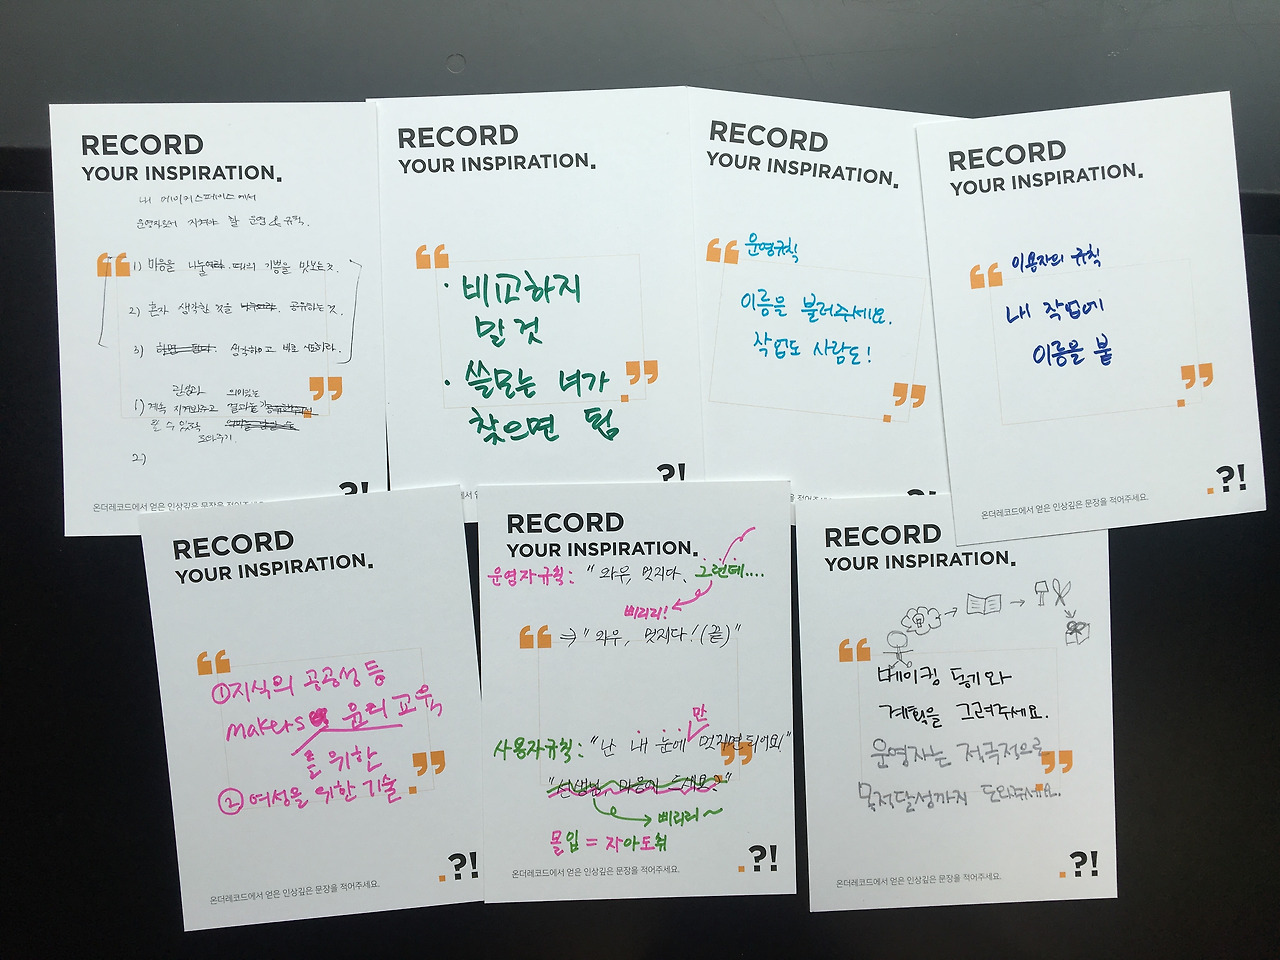 RECORD
YOUR INSPIRATION.
내 메이커스페이스에서
운영자로서 지켜야 할 운영 & 규칙.
1) 마음을 때의 기쁨을 맛보는것.
2) 혼자 생각한 것을 공유하는 것.
3) 생각하고 바로
관심과 의미있는
1) 계속 지켜봐주고 결과물
할 수 있게
도와주기
2)
?!
온더레코드에서 얻은 인상깊은 문장을 적어주세
RECORD
YOUR INSPIRATION.
· 비교하지
말 것
· 쓸모는 너가
찾으면 됨
?!
에서
RECORD
YOUR INSPIRATION.
운영규칙
이름을 불러주세요.
작업도 사람도!
.?!
문장을 적어주세요.
RECORD
YOUR INSPIRATION.
이용자의 규칙
내 작업에
이름을 붙
.?!
온더레코드에서 얻은 인상깊은 문장을 적어주세요.
RECORD
YOUR INSPIRATION.
① 지식의 공공성 등
makers 윤리 교육
를 위한
② 여성을 위한 기술
.?!
온더레코드에서 얻은 인상깊은 문장을 적어주세요.
RECORD
YOUR INSPIRATION.
운영자규칙: "와우, 멋지다. 그런데....
삐리리!
⇒ "와우, 멋지다! (끝)"
만
사용자규칙: "난 내 눈에 멋지면 되어요!"
"선생님, 마음에 드세요?"
삐리리~
몰입 = 자아도취
.?!
온더레코드에서 얻은 인상깊은 문장을 적어주세요.
RECORD
YOUR INSPIRATION.
메이킹 동기와
계획을 그려주세요.
운영자는 적극적으로
목적달성까지 도와주세요.
.?!
온더레코드에서 얻은 인상깊은 문장을 적어주세요.